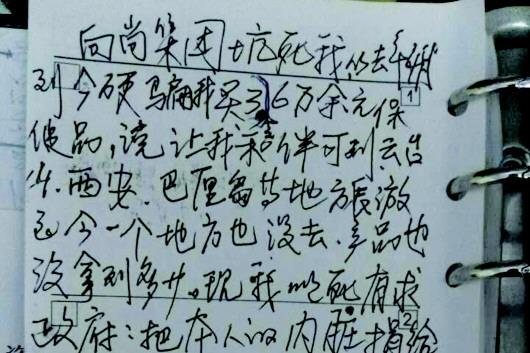 向尚集团坑死我从去年期
到今硬骗我买36万余元保
健品,说让我和伴可到云台
山.西安.巴厘岛等地方旅游
至今一个地方也没去.产品也
没拿到多少。现我以死有求
政府:把本人的内脏捐给
1
2